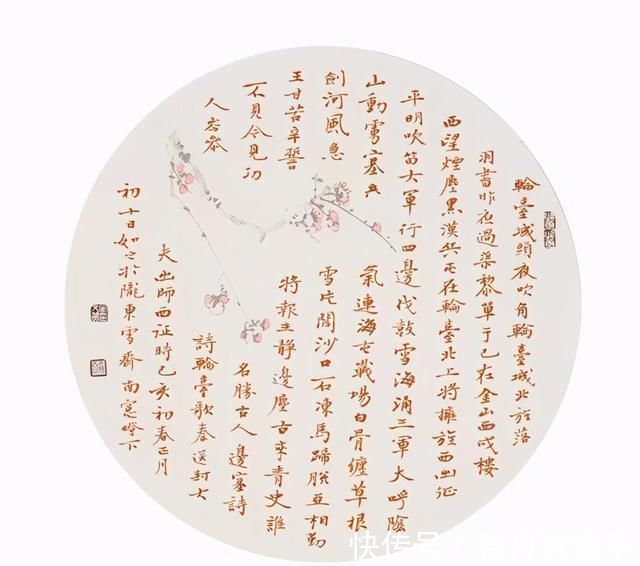 輪臺城頭夜吹角輪臺城北旄落
羽書昨夜過渠黎單于已在金山西戍樓
西望煙塵黑漢兵屯在輪臺北上將擁旄西出征
平明吹笛大軍行四邊伐鼓雪海涌三軍大呼陰
山動虜塞兵氣連海古戰場白骨纏草根
劍河風急雪片闊沙口石凍馬蹄脫亞相勤
王甘苦辛誓將報主靜邊塵古來青史誰
不見今見功名勝古人邊塞詩
人岑參詩輪臺歌奉送封大
夫出師西征時己亥初春正月
初十日如之於隴東雪齋南窓燈下
快传号/雅月说娱乐